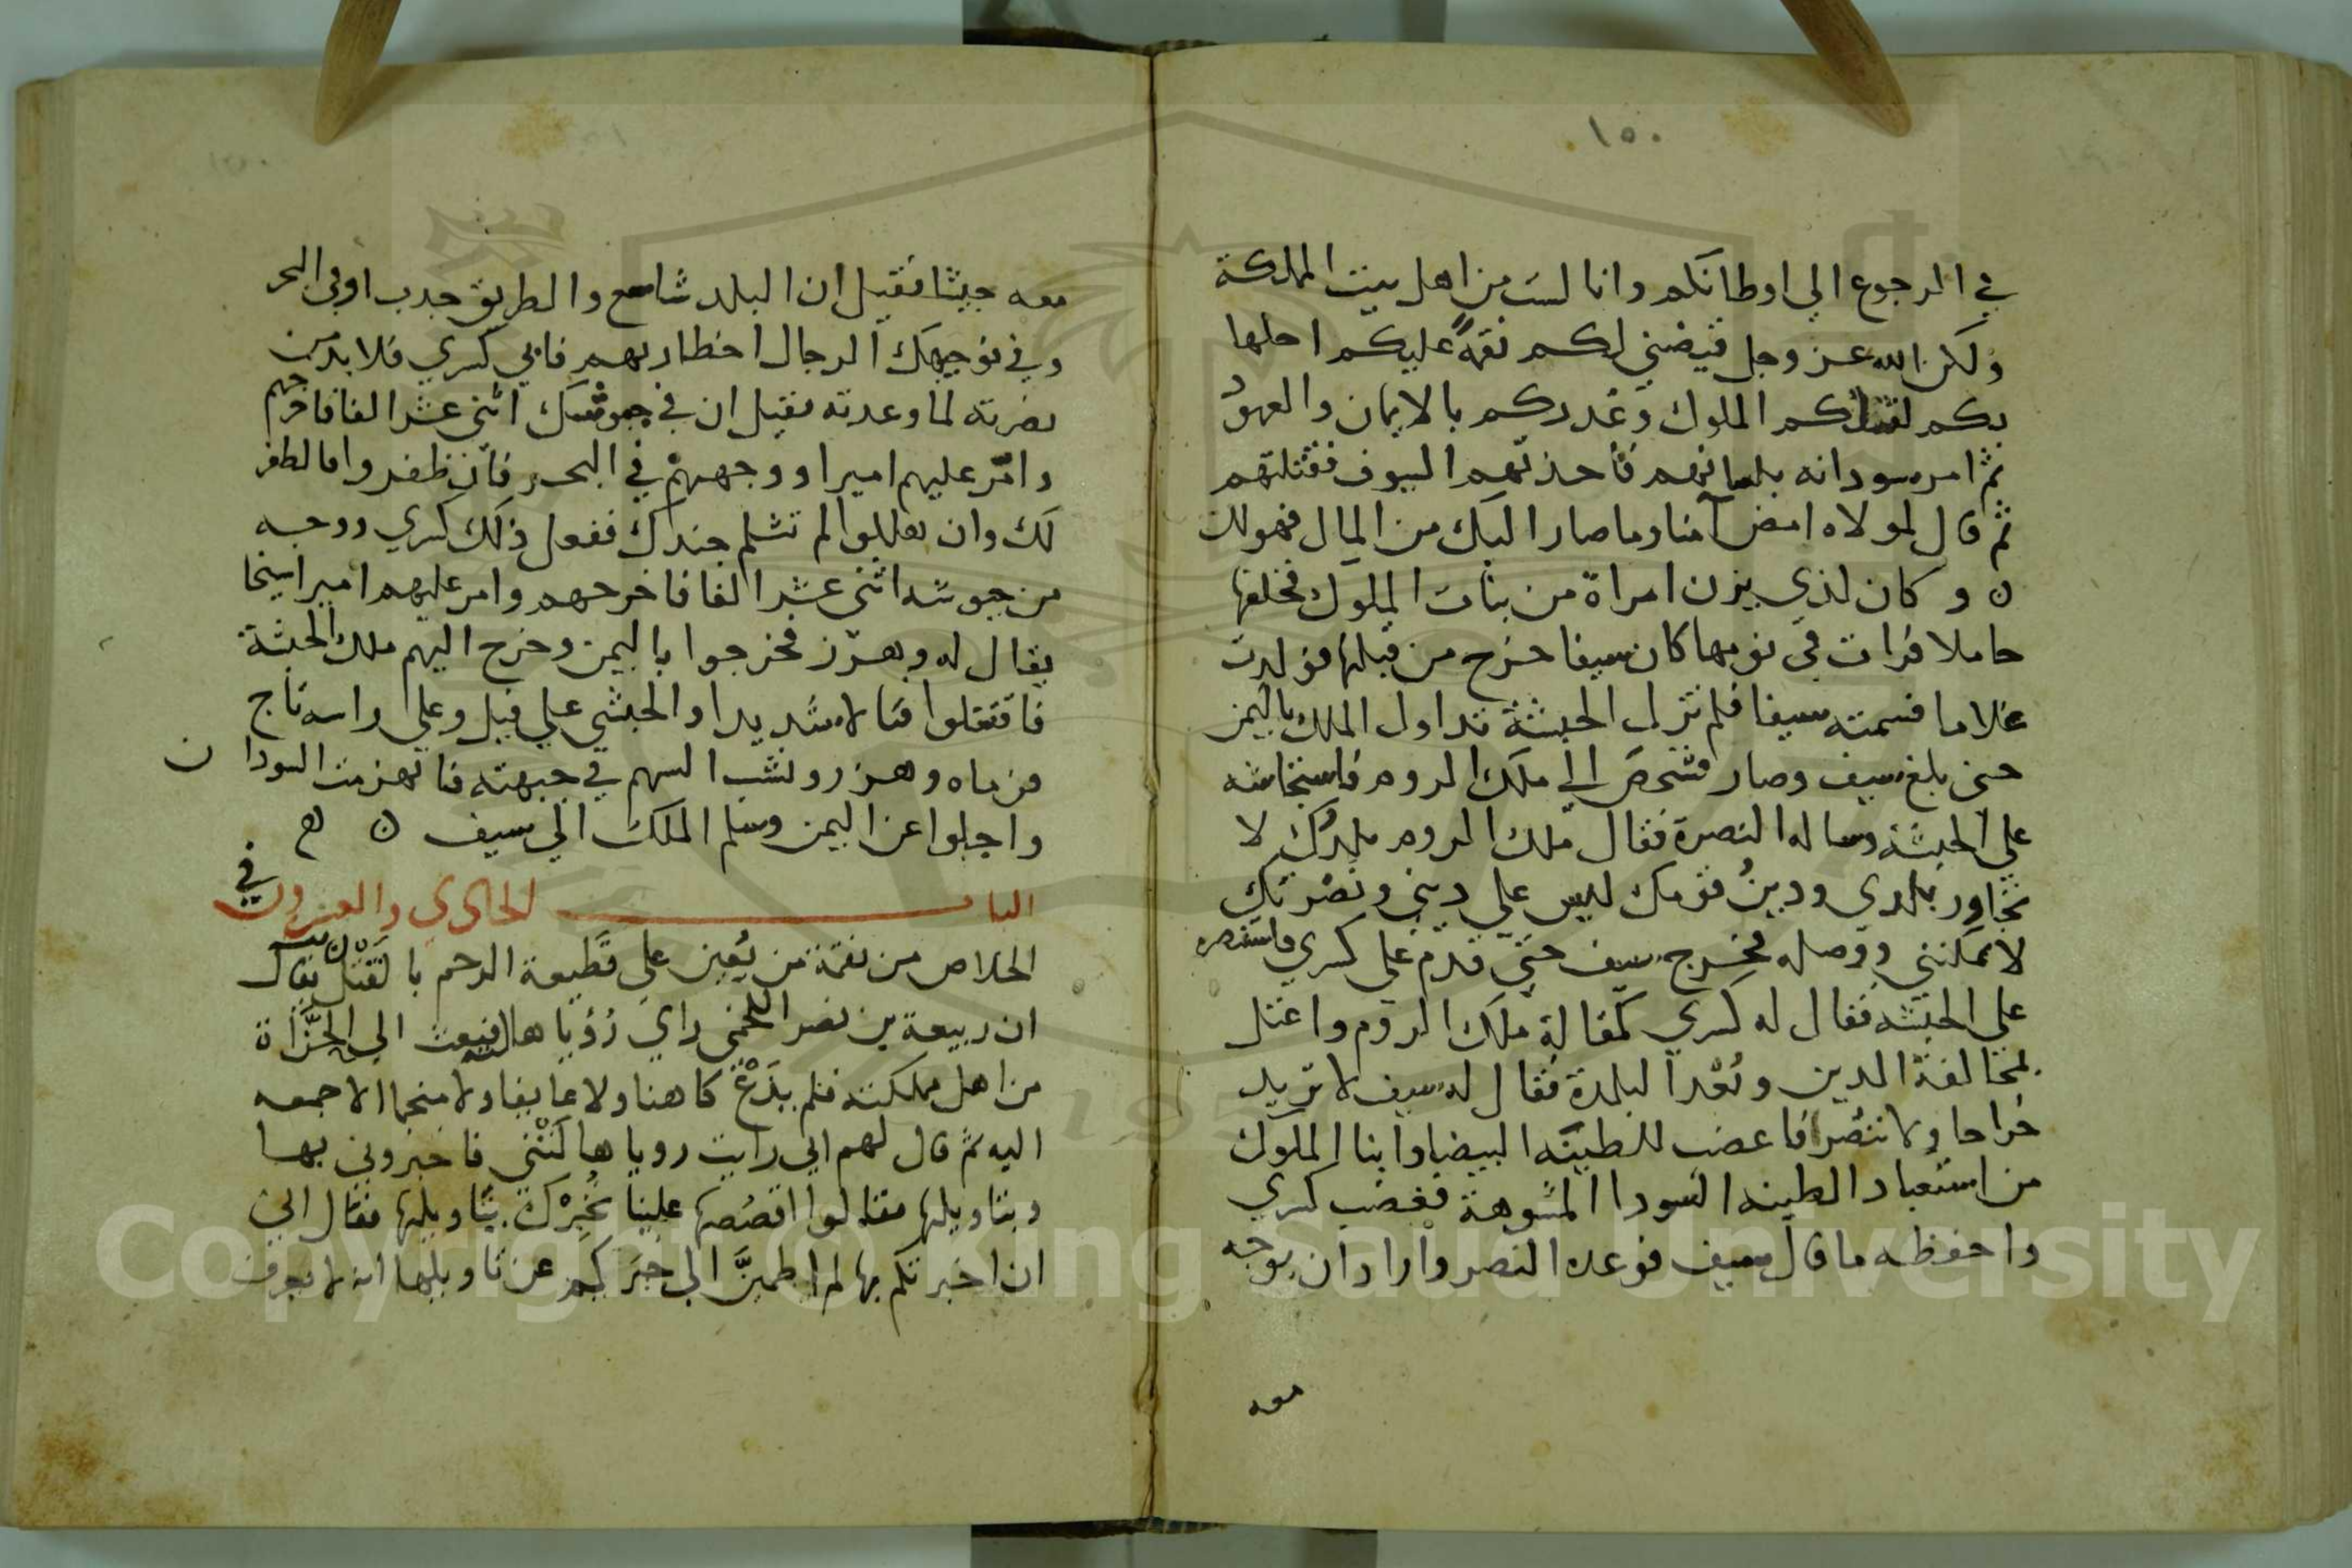 ١٥٠
في الرجوع الي اوطانكم وانا لست من اهل بيت المملكة
ولكن الله عز وجل قيضني لكم نقمةً عليكم احلها
بكم لقتلكم الملوك وغدركم بالايمان والعهود
ثم امر سودانه بلسانهم فأخذتهم السيوف فقتلتهم
ثم قال لمولاه امض آمنا وما صار اليك من المال فهو لك
ن وكان لذي يزن امراة من بنات الملوك فخلفها
حاملا فرات في نومها كان سيفا خرج من قبلها فولدت
غلاما فسمته سيفا فلم تزل الحبشة تداول الملك باليمن
حتى بلغ سيف وصار فشخص الي ملك الروم فاستجاشه
علي الحبشه وساله النصرة فقال ملك الروم بلدك لا
تجاور بلدي ودينُ قومك ليس علي ديني ونصرتك
لا تمكنني ووصله فخرج سيف حتي قدم علي كسري فاستنصره
علي الحبشه فقال له كسري كمقالة ملك الروم واعتل
بمخالفة الدين وبُعْد البلدة فقال له سيف لا تريد
خراجا ولا تنصُر فاغضب للطينه البيضا وابنا الملوك
من استعباد الطينه السودا المشوهة فغضب كسري
واحفظه ما قال سيف فوعده النصر واراد ان يوجه
معه
معه جيشا فقيل ان البلد شاسع والطريق جدب او في البحر
وفي توجيهك الرجال اخطار بهم فابي كسري فلا بد من
نصرته لما وعدته فقيل ان في اثني عشر الفا فاخرجهم
وامّر عليهم اميرا ووجههم في البحر فان ظفروا فالظفر
لك وان هلكوا لم تثلم جندك ففعل ذلك كسري ووجه
من اثني عشر الفا فاخرجهم وامر عليهم اميرا شيخا
يقال له وهرز فخرجوا باليمن وخرج اليهم ملك الحبشة
فاقتتلوا قتالا شديدا والحبشي علي فيل وعلي راسه تاج
فرماه وهرز ونشب السهم في جبهته فانهزمت السودان
واجلوا عن اليمن وسلم الملك الي سيف ن
الباب الحادي والعشرون في
الخلاص من نقمة من يُعين على قَطيعة الرحم بالقَتْل يقال
ان ربيعة بن نصر اللخمي راي رُؤيا هالته فبعث الي الحُزَّاة
من اهل مملكته فلم يدَعْ كاهنا ولا عايفا ولا منجما الا جمعه
اليه ثم قال لهم اني رايت رويا هالَتْني فاخبروني بها
وبتاويلها فقالوا اقصُصها علينا نخبِرْك بتاويلها فقال اني
ان اخبرتكم بها لم اطمينَّ الي خبركم عن تاويلها انه لا يعرف